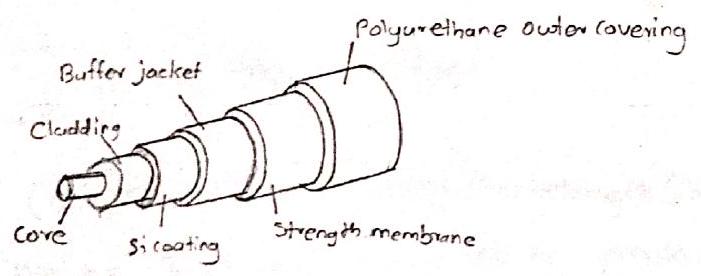 Polyurethane outer covering
Buffer jacket
Cladding
Core
Si coating
Strength membrane